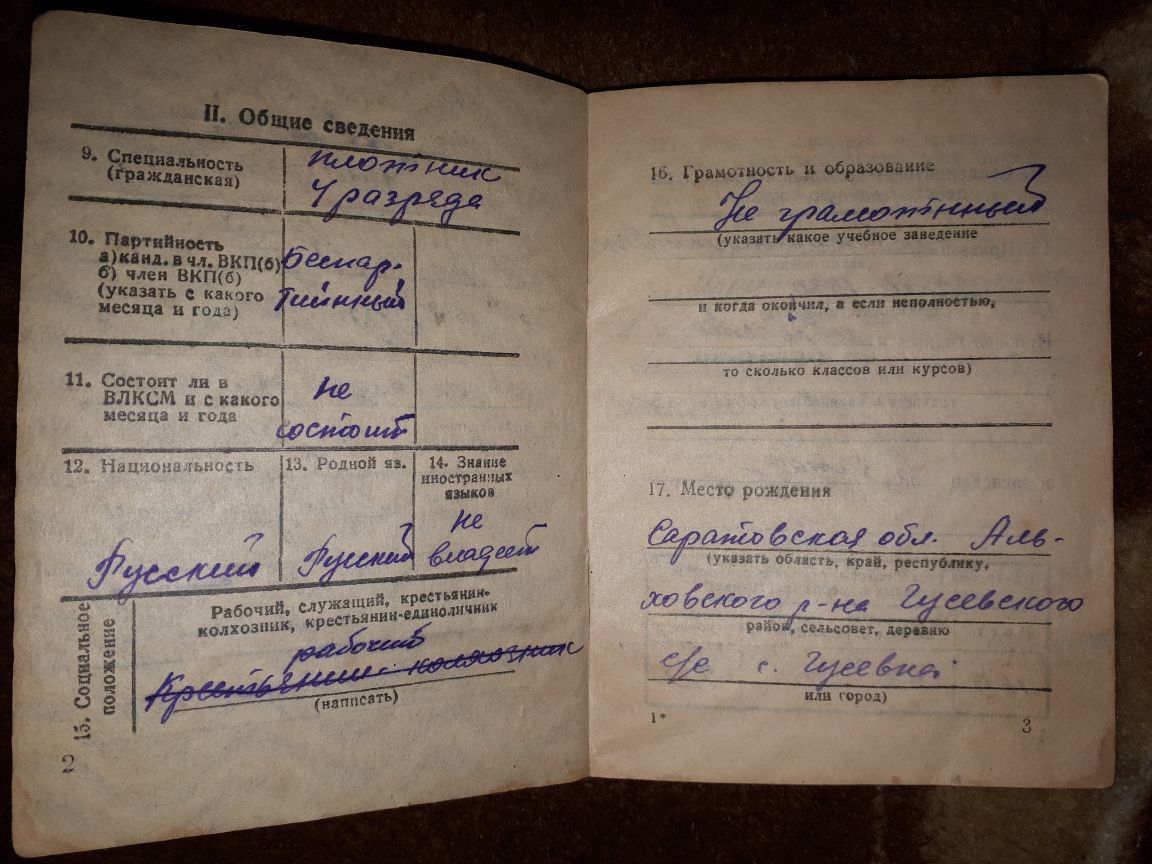 II. Общие сведения
9. Специальность
(гражданская)
плотник
4 разряда
10. Партийность
а) канд. в чл. ВКП(б)
б) член ВКП(б)
(указать с какого
месяца и года)
Беспар-
тийнный
11. Состоит ли в
ВЛКСМ и с какого
месяца и года
не
состоит
12. Национальность
Русский
13. Родной яз.
Русский
14. Знание
иностранных
языков
не
владеет
15. Социальное
положение
Рабочий, служащий, крестьянин-
колхозник, крестьянин-единоличник
рабочий
Крестьянин-колхозник
(написать)
2
16. Грамотность и образование
Не грамотнный
(указать какое учебное заведение
и когда окончил, а если неполностью,
то сколько классов или курсов)
17. Место рождения
Саратовская обл. Аль-
(указать область, край, республику,
ховского р-на Гусевского
район, сельсовет, деревню
с/с с. Гусевка
или город)
1*
3